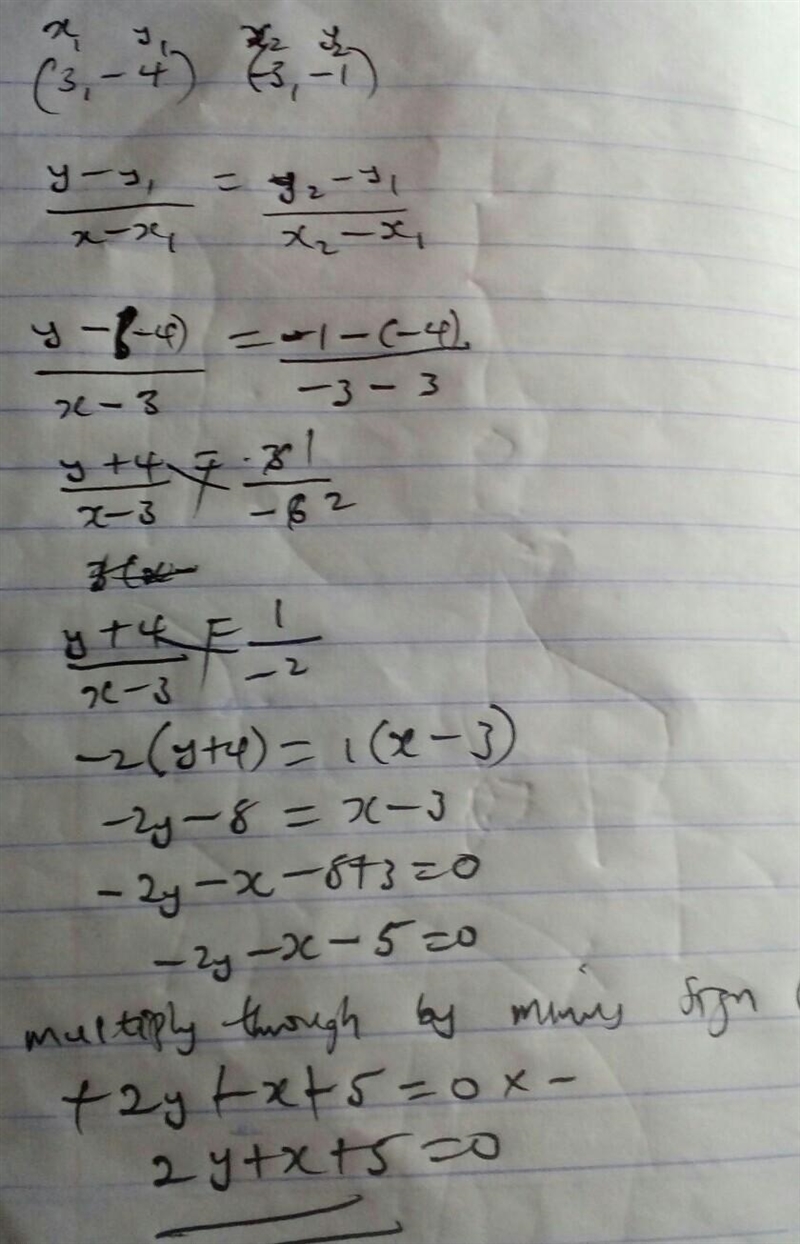 x₁ y₁ x₂ y₂
(3, -4) (-3, -1)
y - y₁ = y₂ - y₁
x - x₁ x₂ - x₁
y - (-4) = -1 - (-4)
x - 3 -3 - 3
y + 4 = 3 1
x - 3 -6 2
3(x-
y + 4 = 1
x - 3 -2
-2(y+4) = 1(x - 3)
-2y - 8 = x - 3
-2y - x - 8+3 = 0
-2y - x - 5 = 0
multiply through by minus sign (
+2y + x + 5 = 0 x -
2y + x + 5 = 0